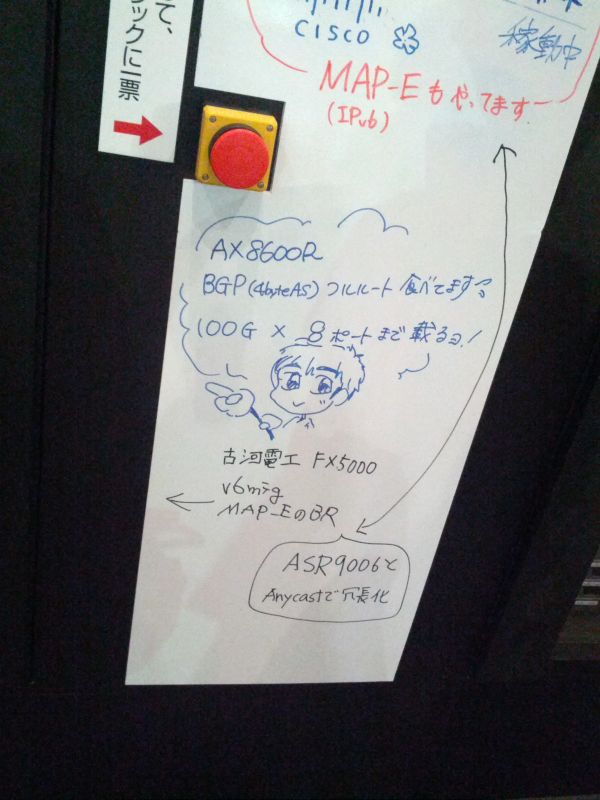 て、
リックに一票
CISCO
稼動中
MAP-Eもやってます
(IPv6)
AX8600R
BGP(4byteAS)フルルート食べてますっ
100G × 8ポートまで載るヨ!
古河電工 FX5000
v6mig
MAP-EのBR
ASR9006と
Anycastで冗長化